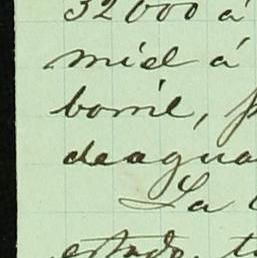 32000 á
miel á
barril,
deagua
La
estado,